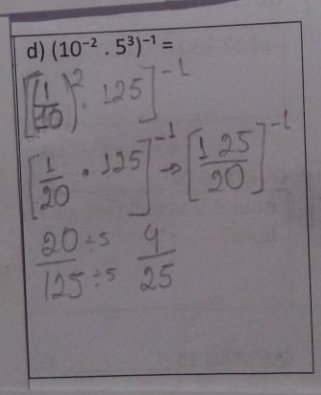 d) (10⁻² . 5³)⁻¹ =
[(1/20)² . 125]⁻¹
[1/20 • 125]⁻¹ → [125/20]⁻¹
20÷5/125÷5 4/25